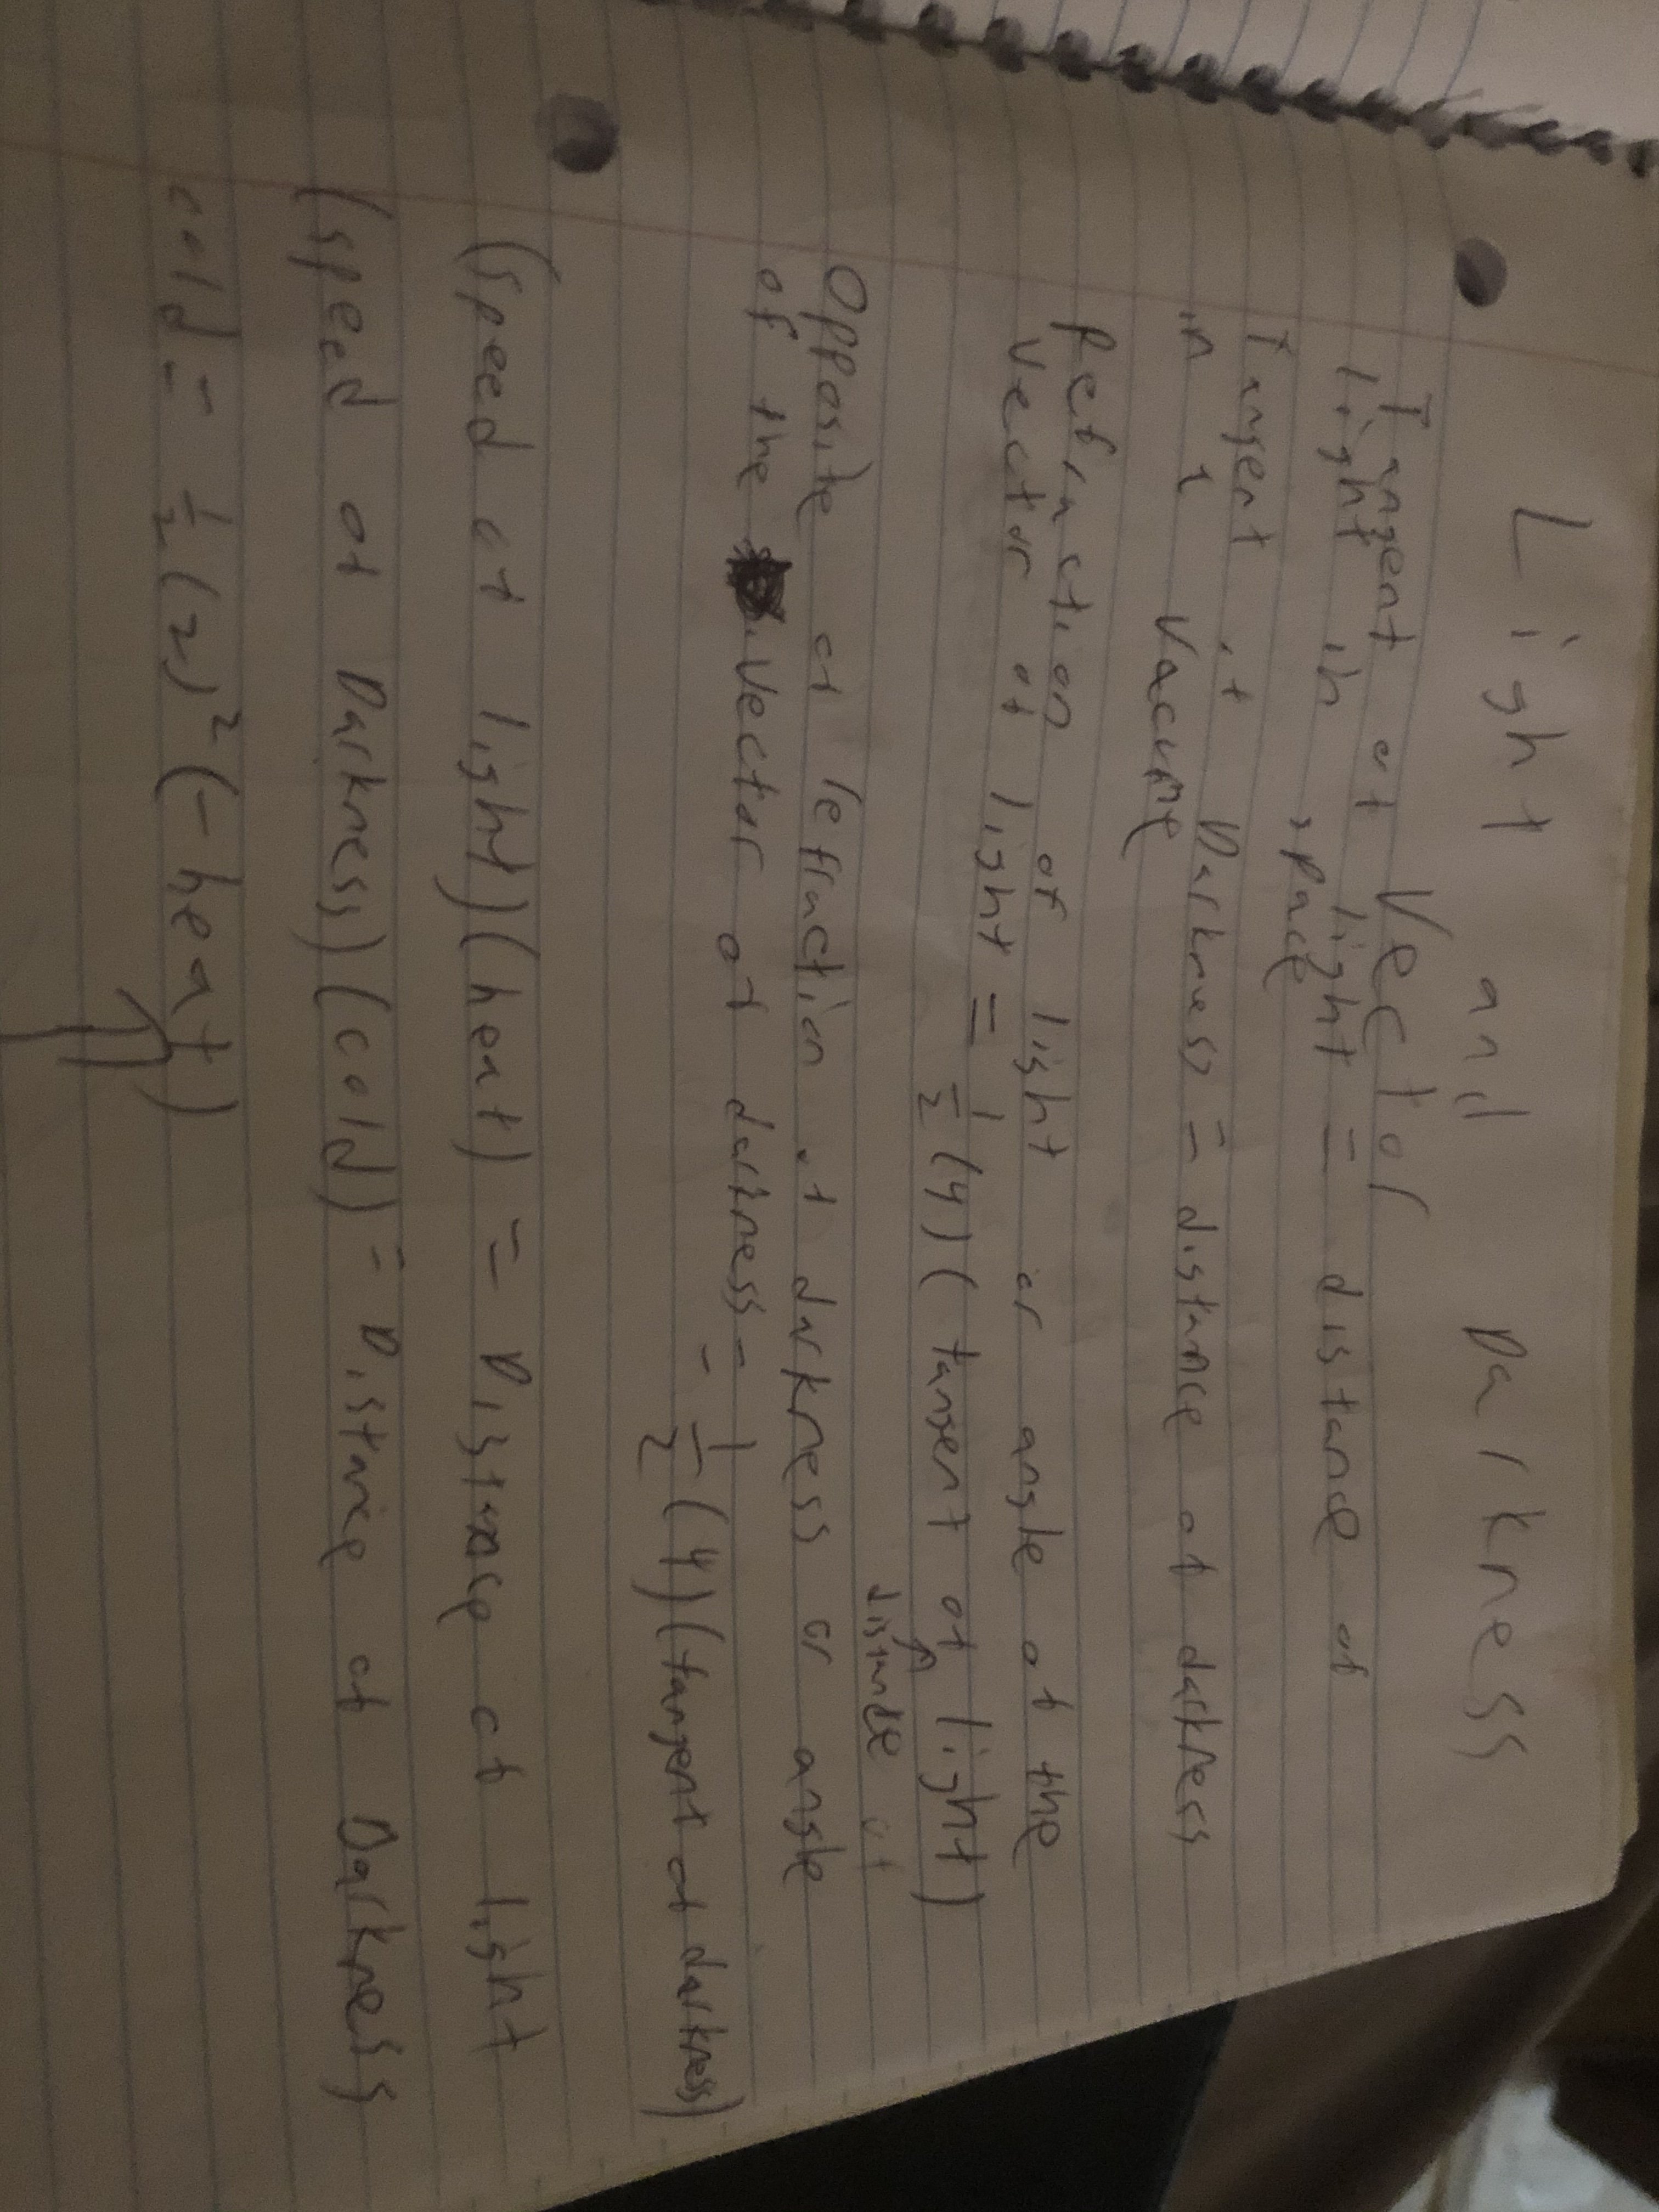 Light and Darkness
Tangent of Vector
light in light = distance of
space
Tangent of Darkness = distance of darkness
in a vacume
Refraction of light or angle of the
vector of light = 1/2 (4) ( tangent of light)
distance of
Opposite of refraction of darkness or angle
of the vector of darkness =
- 1/2 (4) (tangent of darkness)
(speed of light) (heat) = Distance of light
(speed of Darkness) (cold) = Distance of Darkness
cold = 1/2 (2)² (-heat)